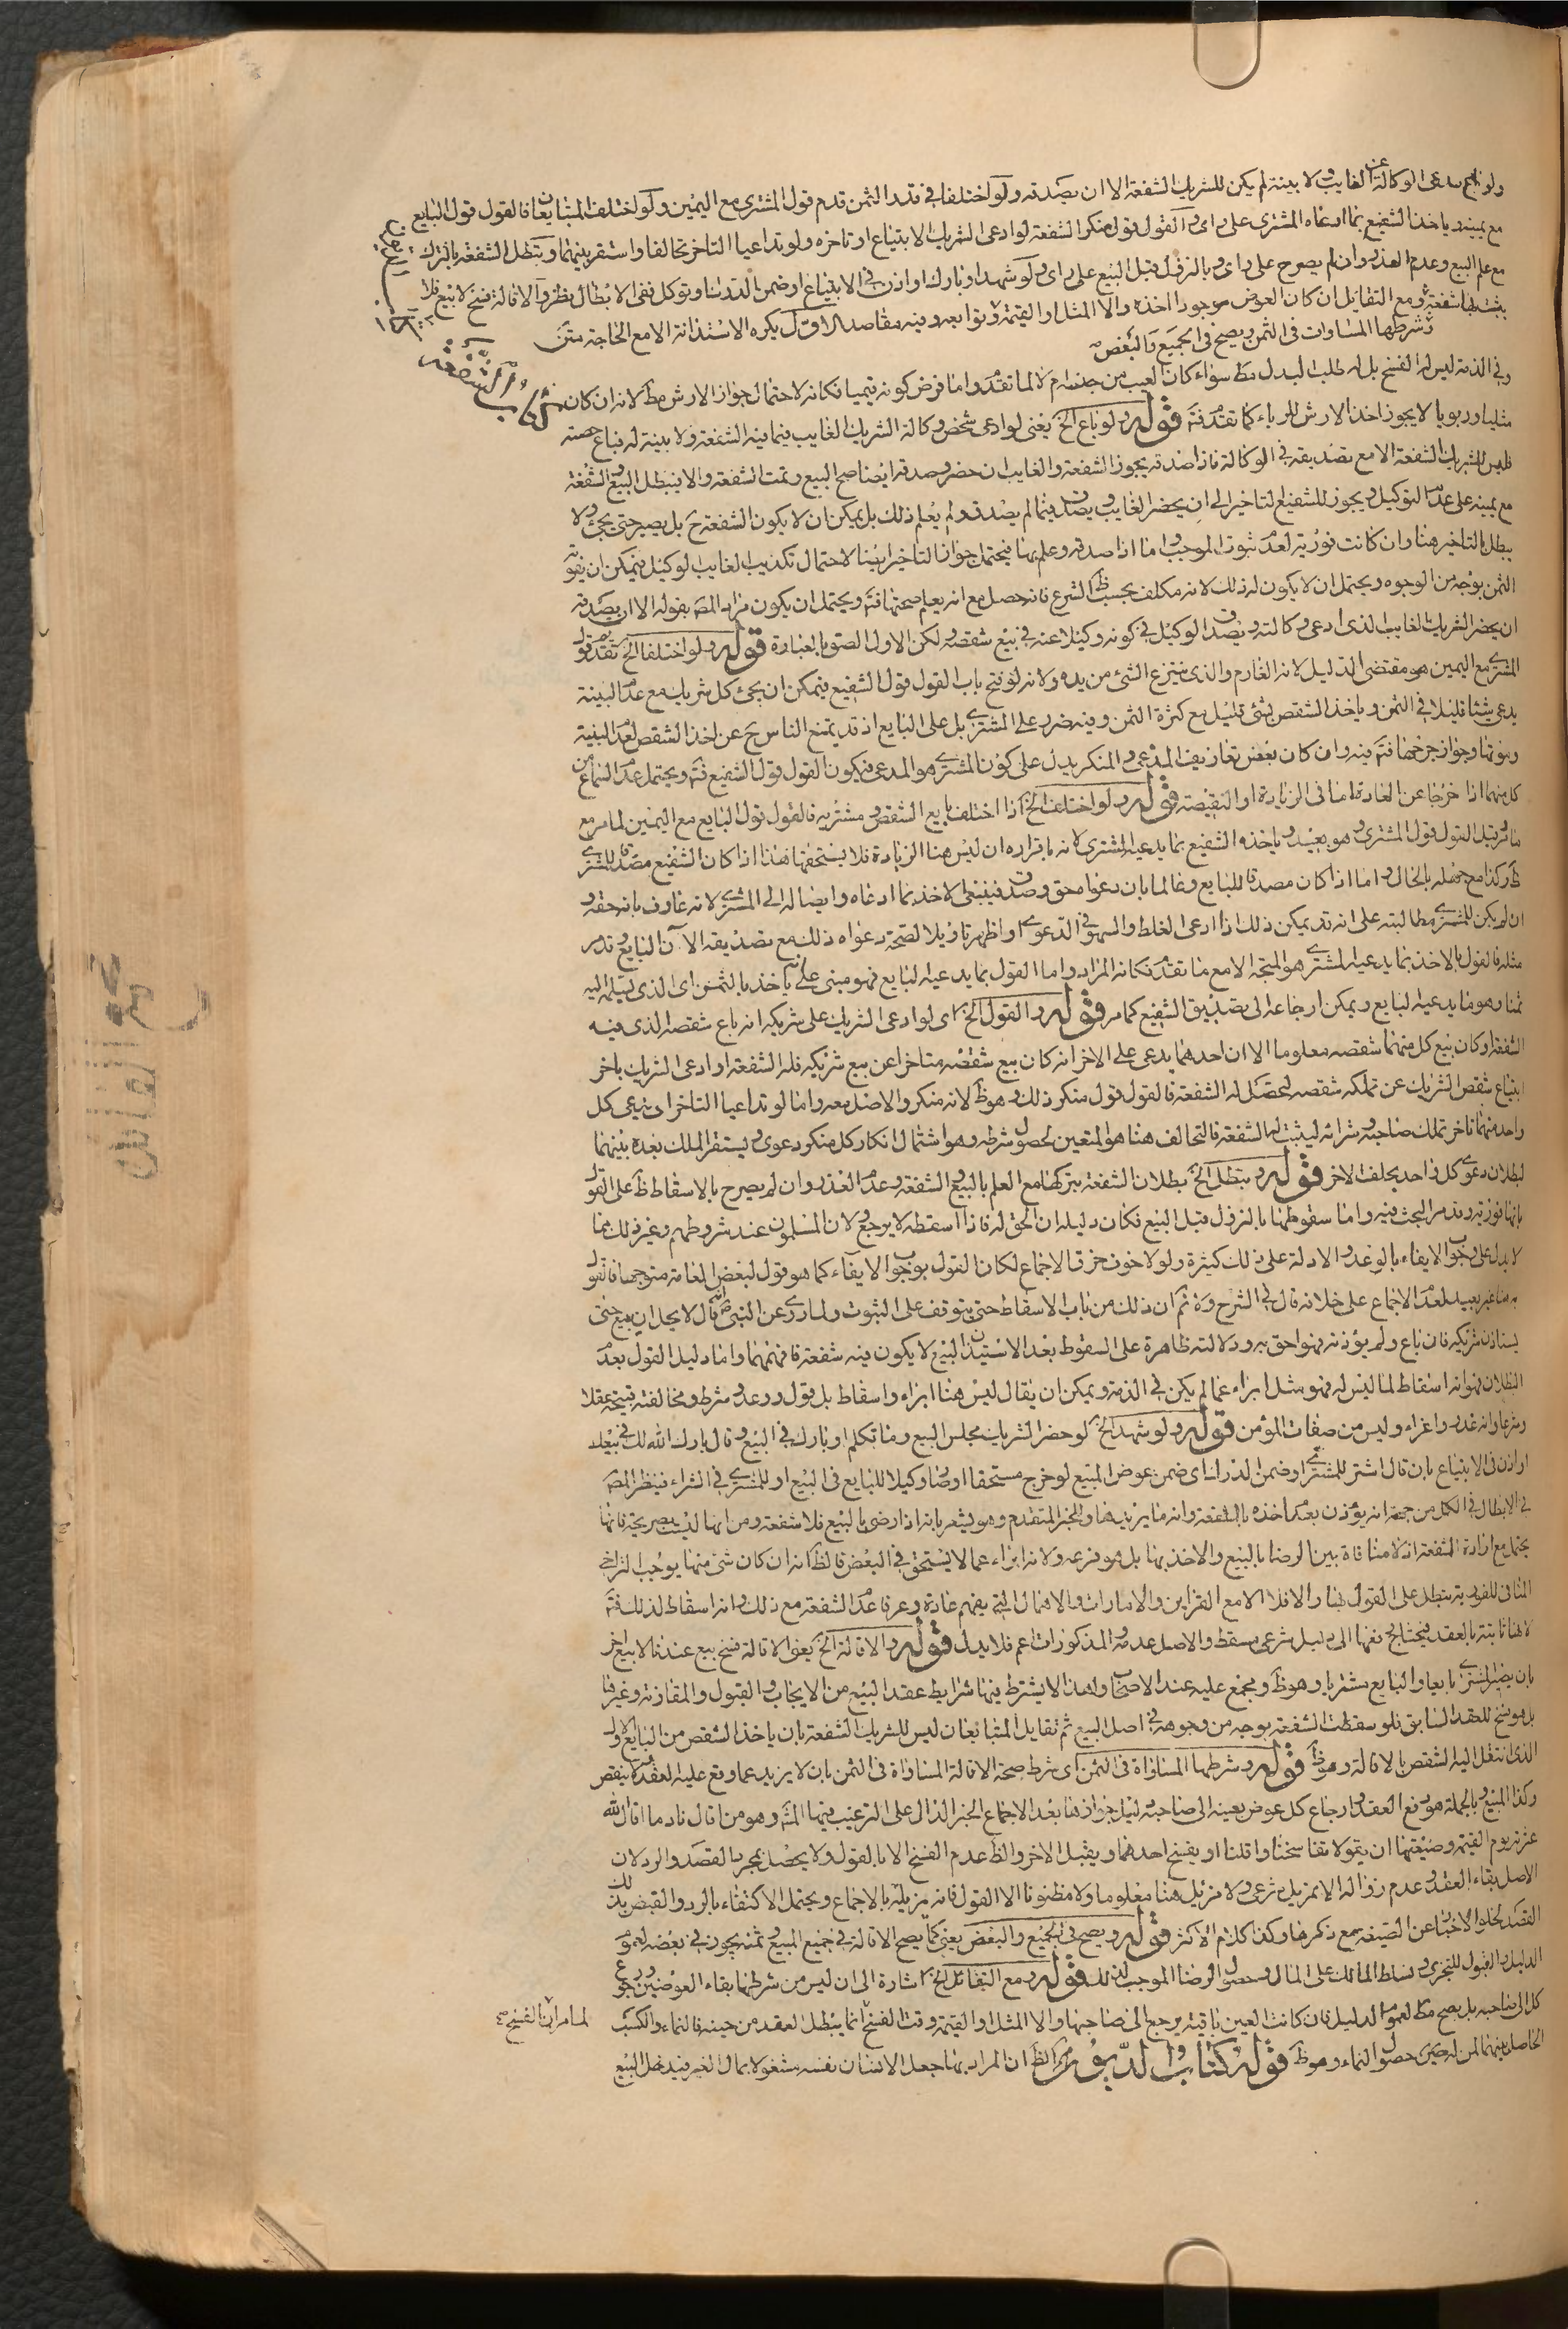 ولو باع مدعى الوكالة عن الغايب ولا بينة لم يكن للشريك الشفعة الا ان يصدقه ولو اختلفا في قدر الثمن قدم قول المشترى مع اليمين ولو اختلف المتبايعان فالقول قول البايع
مع يمينه وياخذ الشفيع بما ادعاه المشترى على راى والقول قول منكر الشفعة لو ادعى الشريك الابتياع او تاخره ولو تداعيا التاخر تحالفا واستقر بينهما وتبطل الشفعة بالترك
مع علم البيع وعدم العذر وان لم يصرح على راى وبالنزول قبل البيع على راى ولو شهد او بارك او اذن في الابتياع او ضمن الدرك او توكل ففى الابطال نظر والاقالة فسخ لا بيع فلا
يثبت بها شفعة ومع التقايل ان كان العوض موجودا اخذه والا المثل او القيمة وتوابعه وفيه مقاصد الاول يكره الاستدانة الا مع الحاجة
وشرطها المساوات في الثمن ويصح في الجميع والبعض
كتاب الشفعة
وفي الذمة ليس له الفسخ بل له طلب البدل مط سواء كان العيب من جنسه ام لا لما تقدم واما فرض كونه قيميا فكانه لاحتمال جواز الارش مط لانه ان كان
مثليا وربويا لا يجوز اخذ الارش للرباء كما تقدم فتم قوله ولو باع الخ يعنى لو ادعى شخص وكالة الشريك الغايب فيما فيه الشفعة ولا بينة له فباع حصته
فليس للشريك الشفعة الا مع تصديقه في الوكالة فاذا صدقه يجوز الشفعة والغايب ان حضر وصدقه ايضا صح البيع وتمت الشفعة والا فيبطل البيع والشفعة
مع يمينه على عدم التوكيل ويجوز للشفيع التاخير الى ان يحضر الغايب ويصدق فيما لم يصدق ولم يعلم ذلك بل يمكن ان لا يكون الشفعة ح بل يصير حتى يجئ ولا
يبطل بالتاخير هنا وان كانت فورية لعدم ثبوت الموجب واما اذا صدقه وعلم بها فيحتمل جواز التاخير ايضا لاحتمال تكذيب الغايب لو كيل فيمكن ان يفوته
الثمن بوجه من الوجوه ويحتمل ان لا يكون له ذلك لانه مكلف بحسب ظ الشرع فانه حصل مع انه يعلم صحتها فتم ويحتمل ان يكون مراد المص بقوله الا ان يصدقه
ان يحضر الشريك الغايب الذى ادعى وكالته ويصدق الوكيل في كونه وكيلا عنه في بيع شقصه ولكن الاول الصق بالعبارة قوله ولو اختلفا الخ تقدم قول
المشترى مع اليمين هو مقتضى الدليل لانه الغارم والذى ينتزع الشئ من يده ولانه لو فتح باب القول قول الشفيع فيمكن ان يجئ كل شريك مع عدم البينة
يدعى شيئا قليلا في الثمن وياخذ الشقص بشئ قليل مع كثرة الثمن وفيه ضرر على المشترى بل على البايع اذ قد يمتنع الناس ح عن اخذ الشقص لعدم البينة
وفيه وان كان بعض تعاريف المدعى والمنكر يدل على كون المشترى هو المدعى فيكون القول قول الشفيع فتم ويحتمل عدم السماع من
كل منهما اذا خرجا عن العادة اما في الزيادة او النقيصة قوله ولو اختلف الخ اذا اختلف بايع الشقص ومشتريه فالقول قول البايع مع اليمين لما مر مع
ما وقيل القول قول المشترى وهو بعيد وياخذه الشفيع بما يدعيه المشترى لانه باقراره ان ليس هنا الزيادة فلا يستحقها هذا اذا كان الشفيع مصدقا للمشترى
ظ وكذا مع جهله بالحال واما اذا كان مصدقا للبايع وعالما بان دعواه حق وصدق فينبغى الاخذ بما ادعاه وايصاله الى المشترى لانه عارف بانه حقه و
ان لم يكن للمشترى مطالبته على انه قد يمكن ذلك اذا ادعى الغلط والسهو في الدعوى او اظهر تاويلا لصحة دعواه ذلك مع تصديقه الآن البايع وقدر
مثله فالقول بالاخذ بما يدعيه المشترى هو المتجه الا مع ما تقدم فكانه المراد واما القول بما يدعيه البايع فهو مبنى على انه ياخذ بالثمن اى الذى يسلم اليه
ثمنا وهو ما يدعيه البايع ويمكن ارجاعه الى تصديق الشفيع كما مر قوله والقول الخ اى لو ادعى الشريك على شريكه انه باع شقصه الذى فيه
الشفعة وكان بيع كل منهما شقصه معلوما الا ان احدهما يدعى على الاخر انه كان بيع شقصه متاخرا عن بيع شريكه فله الشفعة او ادعى الشريك تاخر
ابتياع شقص الشريك عن تملكه شقصه ليحصل له الشفعة فالقول قول منكر ذلك وهو ظ لانه منكر والاصل معه واما لو تداعيا التاخر اى يدعى كل
واحد منهما تاخر تملك صاحبه وشرائه ليثبت له الشفعة فالتحالف هنا هو المتعين لحصول شرطه وهو اشتمال انكار كل منكر دعوى ويستقر الملك بعده بينهما
لبطلان دعوى كل واحد بحلف الاخر قوله وتبطل الخ بطلان الشفعة بتركها مع العلم بالبيع والشفعة وعدم العذر وان لم يصرح بالاسقاط ظ على القول
بانها فورية وقد مر البحث فيه واما سقوطها بالنزول قبل البيع فكان دليله ان الحق له فاذا اسقطه لا يرجع ولان المسلمون عند شروطهم وغير ذلك مما
لا يدل على وجوب الايفاء بالوعد والادلة على ذلك كثيرة ولولا خوف خرق الاجماع لكان القول بوجوب الايفاء كما هو قول لبعض العامة متوجها فالقول
به هنا غير بعيد لعدم الاجماع على خلافه قال في الشرح وه ثم ان ذلك من باب الاسقاط حتى يتوقف على الثبوت ولما روى عن النبى ص قال لا يحل ان يبيع حتى
يستاذن شريكه فان باع ولم يؤذنه فهو احق به ودلالته ظاهرة على السقوط بعد الاستيذان البيع لا يكون فيه شفعة فافهمهما واما دليل القول بعدم
البطلان فهو انه اسقاط لما ليس له فهو مثل ابراء عما لم يكن في الذمة ويمكن ان يقال ليس هنا ابراء واسقاط بل قول ووعد وشرط ومخالفته قبيحة عقلا
وشرعا وانه غدر واغراء وليس من صفات المؤمن قوله ولو شهد الخ لو حضر الشريك مجلس البيع وما تكلم او بارك في البيع وقال بارك الله لك في بيعك
او اذن في الابتياع بان قال اشتر للمشترى او ضمن الدرك اى ضمن عوض المبيع لو خرج مستحقا او صار وكيلا للبايع في البيع او للمشترى في الشراء فينظر المص
في الابطال في الكل من جهة انه يؤذن بعدم اخذه بالشفعة وانه ما يريدها والخبر المتقدم وهو يشعر بانه اذا رضى بالبيع فلا شفعة ومن انها ليست بصريحة فانها
يحتمل مع ارادة الشفعة اذ لا منافاة بين الرضا بالبيع والاخذ بها بل هو فرعه ولانه ابراء عما لا يستحق في البعض فالظ انه ان كان شئ منها يوجب التراخى
المنافى للفورية يبطل على القول بها والا فلا الا مع القراين والامارات والافعال التى يفهم عادة وعرفا عدم الشفعة مع ذلك وانه اسقاط لذلك فتم
لانها ثابتة بالعقد فيحتاج نفيها الى دليل شرعى مسقط والاصل عدمه والمذكورات اعم فلا يدل قوله والاقالة الخ يعنى الاقالة فسخ بيع عندنا لا بيع اخر
بان يصير المشترى بايعا والبايع مشتريا وهو ظ ومجمع عليه عند الاصحاب ولهذا لا يشترط فيها شرايط عقد البيع من الايجاب والقبول والمقارنة وغيرها
بل هو فسخ للعقد السابق فلو سقطت الشفعة بوجه من وجوهه في اصل البيع ثم تقايل المتبايعان ليس للشريك الشفعة بان ياخذ الشقص من البايع الاول
الذى انتقل اليه الشقص بالاقالة وهو ظ قوله وشرطها المساواة في الثمن اى شرط صحة الاقالة المساواة في الثمن بان لا يزيد عما وقع عليه العقد ولا ينقص
وكذا المبيع وبالجملة هو رفع العقد وارجاع كل عوض بعينه الى صاحبه ودليل جوازها بعد الاجماع الخبر الدال على الترغيب فيها المتم وهو من اقال نادما اقال الله
عثرته يوم القيمة وصيغتها ان يقولا تفاسخنا واقلنا او يفسخ احدهما ويقبل الاخر والظ عدم الفسخ الا بالقول ولا يحصل بمجرد القصد والرد لان
الاصل بقاء العقد وعدم زواله الا بمزيل شرعى ولا مزيل هنا معلوما ولا مظنونا الا القول فانه مزيله بالاجماع ويحتمل الاكتفاء بالرد والقبض بذلك
القصد لخلو الاخبار عن الصيغة مع ذكرها وكذا كلام الاكثر قوله ويصح في الجميع والبعض يعنى كما يصح الاقالة في جميع المبيع وثمنه يجوز في بعضه لعموم
الدليل والقبول للتجزى وتسلط المالك على المال وحصول الرضا الموجب لذلك قوله ومع التقائل الخ اشارة الى ان ليس من شرطها بقاء العوضين ورجوع
كل الى صاحبه بل يصح مط لعموم الدليل فان كانت العين باقية يرجع الى صاحبها والا المثل او القيمة وقت الفسخ انما يبطل العقد من حينه فالنماء والكسب
لما مر ان الفسخ
الحاصل بينهما لمن له حين حصول النماء وهو ظ قوله كتاب الديون الظ ان المراد بها جعل الانسان نفسه مشغولا بمال الغير فيدخل البيع